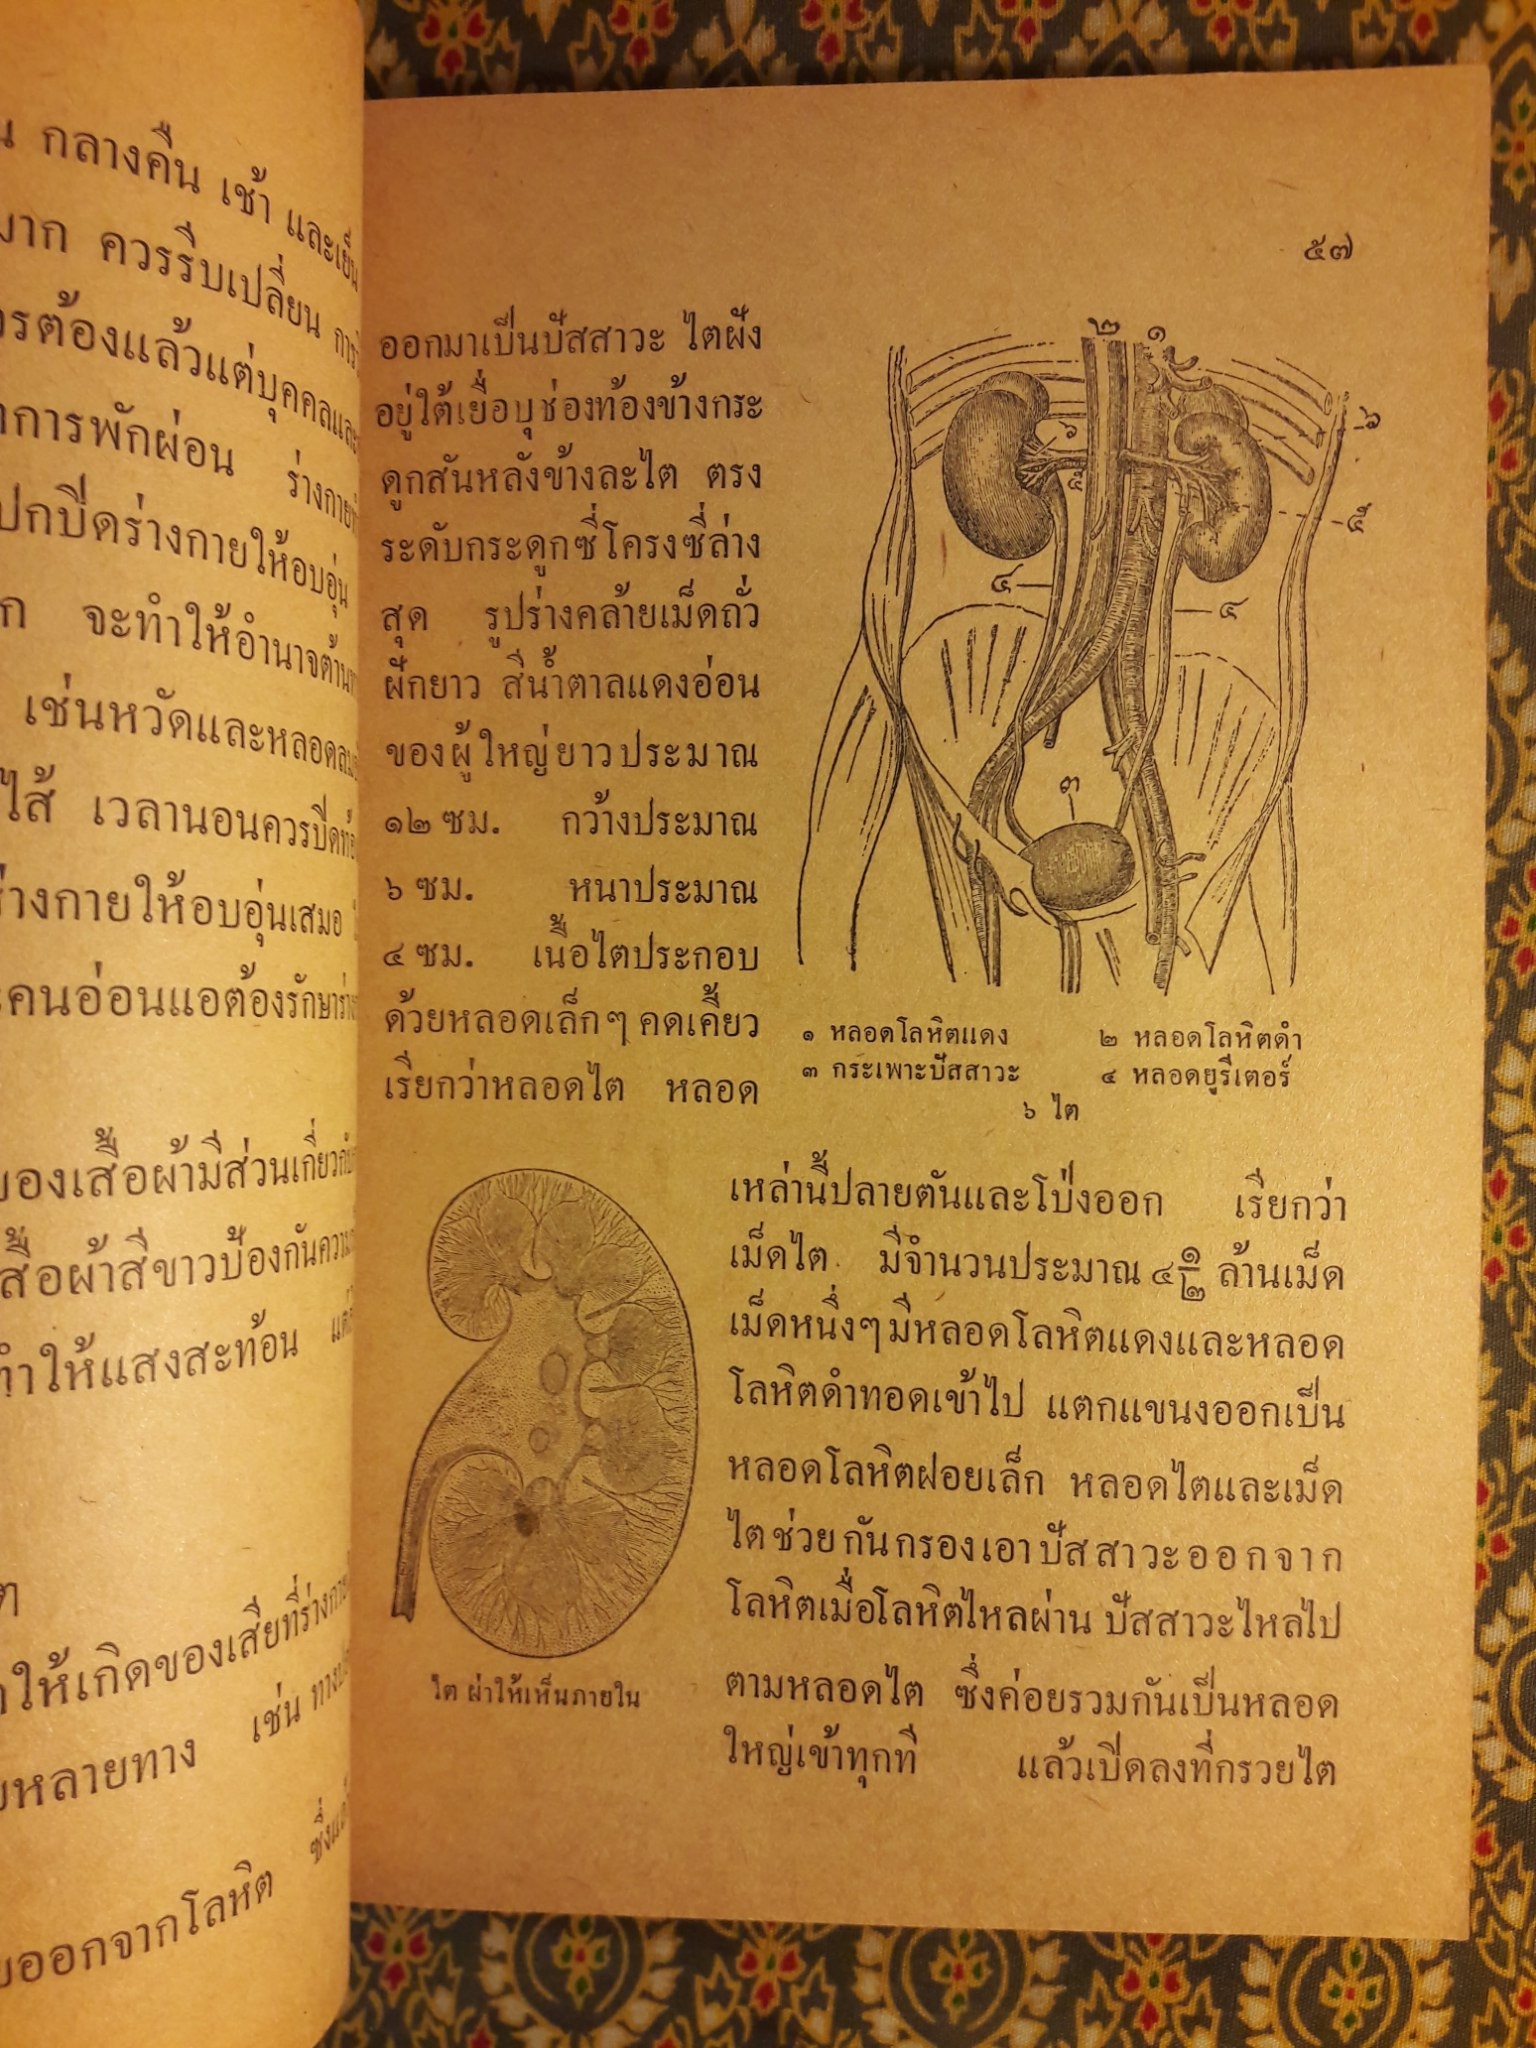 น กลางคืน เช้า และเย็น
มาก ควรรีบเปลี่ยน การ
รต้องแล้วแต่บุคคลและ
การพักผ่อน ร่างกาย
ปกปิดร่างกายให้อบอุ่น
ก จะทำให้อำนาจต้าน
เช่นหวัดและหลอดลม
ไส้ เวลานอนควรปิดท้อ
ร่างกายให้อบอุ่นเสมอ
คนอ่อนแอต้องรักษาร่าง
ของเสื้อผ้ามีส่วนเกี่ยวกับ
สื้อผ้าสีขาวป้องกันความ
ทำให้แสงสะท้อน แต่
ต
ให้เกิดของเสียที่ร่างกาย
หลายทาง เช่น ทาง
ออกจากโลหิต ซึ่งแล
๕๗
ออกมาเป็นปัสสาวะ ไตฝัง
อยู่ใต้เยื่อบุช่องท้องข้างกระ
ดูกสันหลังข้างละไต ตรง
ระดับกระดูกซี่โครงซี่ล่าง
สุด รูปร่างคล้ายเม็ดถั่ว
ฝักยาว สีน้ำตาลแดงอ่อน
ของผู้ใหญ่ยาวประมาณ
๑๒ ซม. กว้างประมาณ
๖ ซม. หนาประมาณ
๔ ซม. เนื้อไตประกอบ
ด้วยหลอดเล็กๆ คดเคี้ยว
เรียกว่าหลอดไต หลอด
๒ ๑
๖
๖
๕
๕
๔
๔
๓
๑ หลอดโลหิตแดง ๒ หลอดโลหิตดำ
๓ กระเพาะปัสสาวะ ๔ หลอดยูรีเตอร์
๖ ไต
เหล่านี้ปลายตันและโป่งออก เรียกว่า
เม็ดไต มีจำนวนประมาณ ๔ ๑/๒ ล้านเม็ด
เม็ดหนึ่งๆ มีหลอดโลหิตแดงและหลอด
โลหิตดำทอดเข้าไป แตกแขนงออกเป็น
หลอดโลหิตฝอยเล็ก หลอดไตและเม็ด
ไตช่วยกันกรองเอาปัสสาวะออกจาก
โลหิตเมื่อโลหิตไหลผ่าน ปัสสาวะไหลไป
ตามหลอดไต ซึ่งค่อยรวมกันเป็นหลอด
ใหญ่เข้าทุกที แล้วเปิดลงที่กรวยไต
ไต ผ่าให้เห็นภายใน